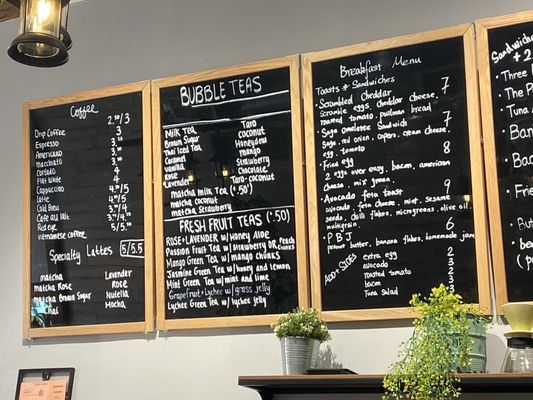 Coffee
2.50/3
Drip Coffee 3
Espresso 3
Americano 3
Macchiato 3
Cortado 4
Flat White 4
Cappuccino 4/5
Latte 4/5
Cold Brew 3/4
Cafe au lait
Red eye
Vietnamese coffee 5/5.50
Specialty Lattes 5/5.5
matcha Lavender
matcha Rose Rose
matcha Brown Sugar Nutella
Chai Mocha
BUBBLE TEAS
Milk Tea Taro
Brown Sugar coconut
Thai Iced Tea Honeydew
Caramel mango
Vanilla Strawberry
Rose Chocolate
Lavender Taro-coconut
matcha Milk Tea (+.50)
matcha coconut
matcha strawberry
FRESH FRUIT TEAS (+.50)
ROSE + LAVENDER w/ Honey Aloe
Passion Fruit Tea w/ Strawberry OR Peach chunks
Mango Green Tea w/ mango chunks
Jasmine Green Tea w/ honey and lemon
Mint Green Tea w/ mint and lime
Grapefruit + Lychee w/ grass jelly
Lychee Green Tea w/ Lychee jelly
Breakfast Menu
Toasts + Sandwiches
• Scrambled Cheddar 7
Scramble eggs, cheddar cheese,
roasted tomato, pullman bread
• Soyo omelette Sandwich 7
Soyo, red onion, capers, cream cheese
• Fried egg 8
2 eggs over easy, bacon, american
cheese, mix green
• Avocado feta toast 9
avocado, feta cheese, mint, sesame
seeds, chili flakes, microgreens, olive oil
multigrain
• PBJ 6
peanut butter, banana foffle, homemade jam
ADD + SIDES
extra egg 2
avocado 3
roasted tomato 2
bacon 3
Tuna Salad
Sandwiches
+ 2
Three
The P
Tuna
Ban
Ba
Frie
But